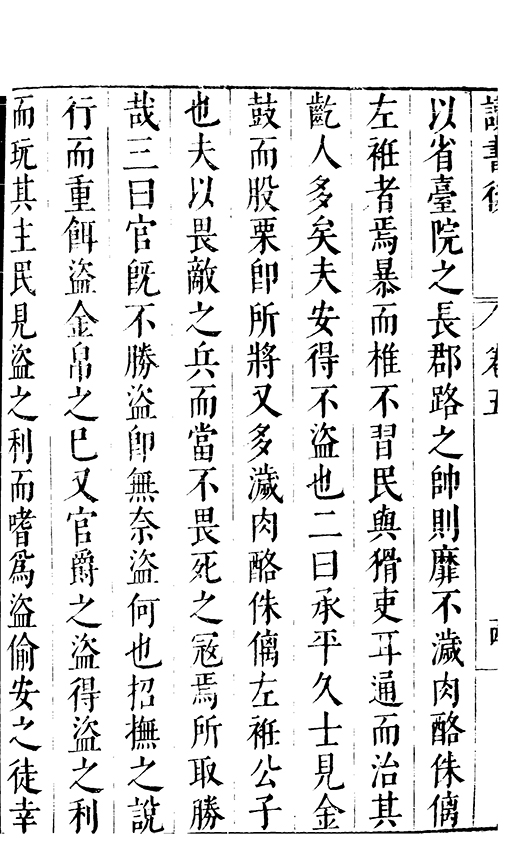 讀書後 卷五 四
以省臺院之長郡路之帥則靡不濊肉酪侏㒧
左袵者焉暴而椎不習民與猾吏耳通而治其
齕人多矣夫安得不盜也二曰承平久士見金
鼓而股栗卽所將又多濊肉酪侏㒧左袵公子
也夫以畏敵之兵而當不畏死之冦焉所取勝
哉三曰官旣不勝盜卽無奈盜何也招撫之說
行而重餌盜金帛之巳又官爵之盜得盜之利
而玩其主民見盜之利而嗜爲盜偷安之徒幸